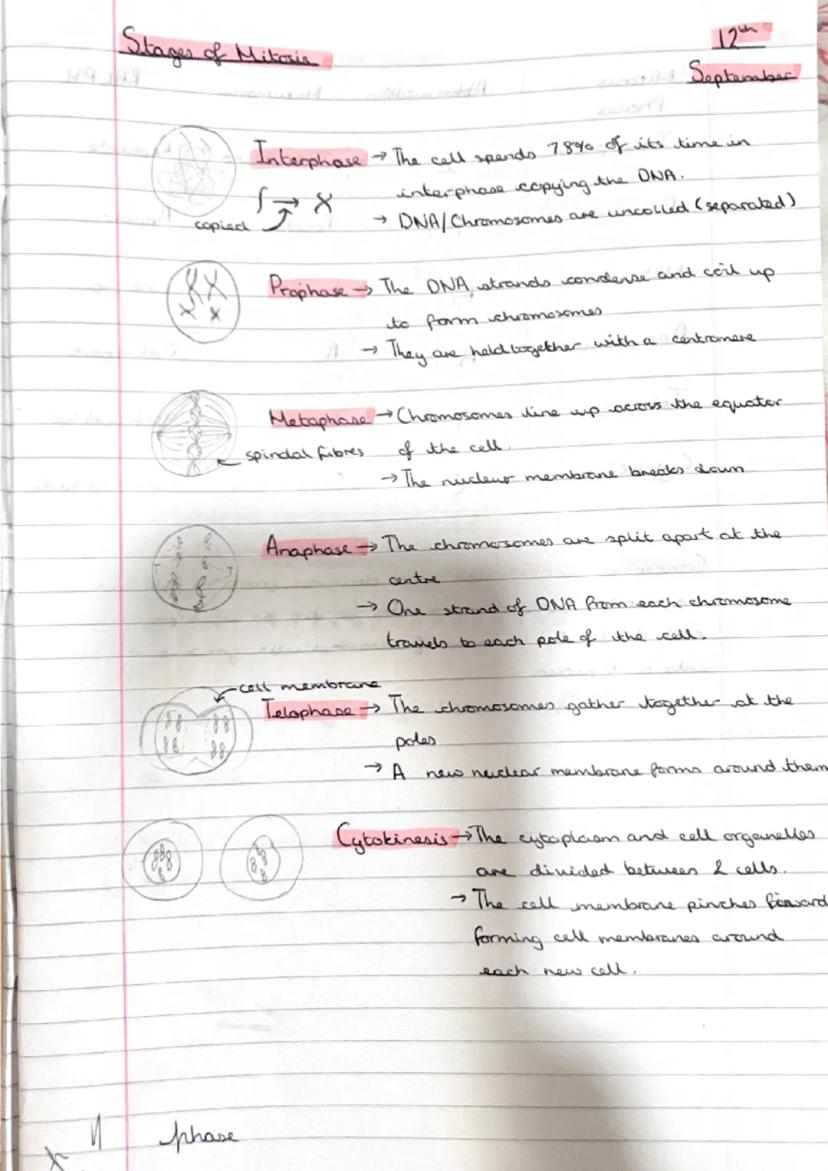 Stages of Mitosis
12th
September
Interphase → The cell spends 78% of its time in
interphase copying the DNA.
copied
→ DNA/Chromosomes are uncoiled (separated)
Prophase → The DNA strands condense and coil up
to form chromosomes
→ They are held together with a centromere
Metaphase → Chromosomes line up across the equator
spindal fibres
of the cell.
→ The nuclear membrane breaks down
Anaphase → The chromosomes are split apart at the
centre
→ One strand of DNA from each chromosome
travels to each pole of the cell.
cell membrane
Telophase → The chromosomes gather together at the
poles
→ A new nuclear membrane forms around them
Cytokinesis → The cytoplasm and cell organelles
are divided between 2 cells.
→ The cell membrane pinches
forming cell membranes around
each new cell.
phase